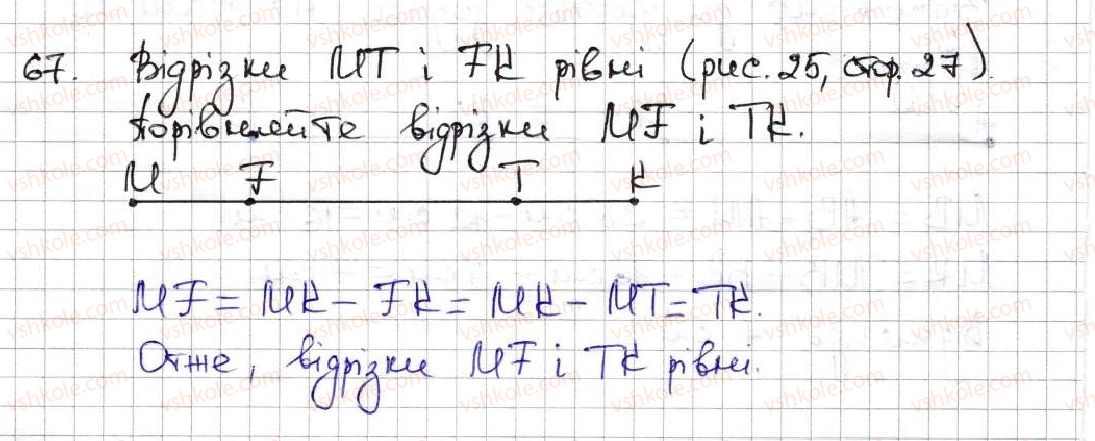 67. Відрізки MT і FK рівні (рис. 25, стор. 27).
Порівняйте відрізки MF і TK.
M F T K
MF = MK - FK = MK - MT = TK.
Отже, відрізки MF і TK рівні.